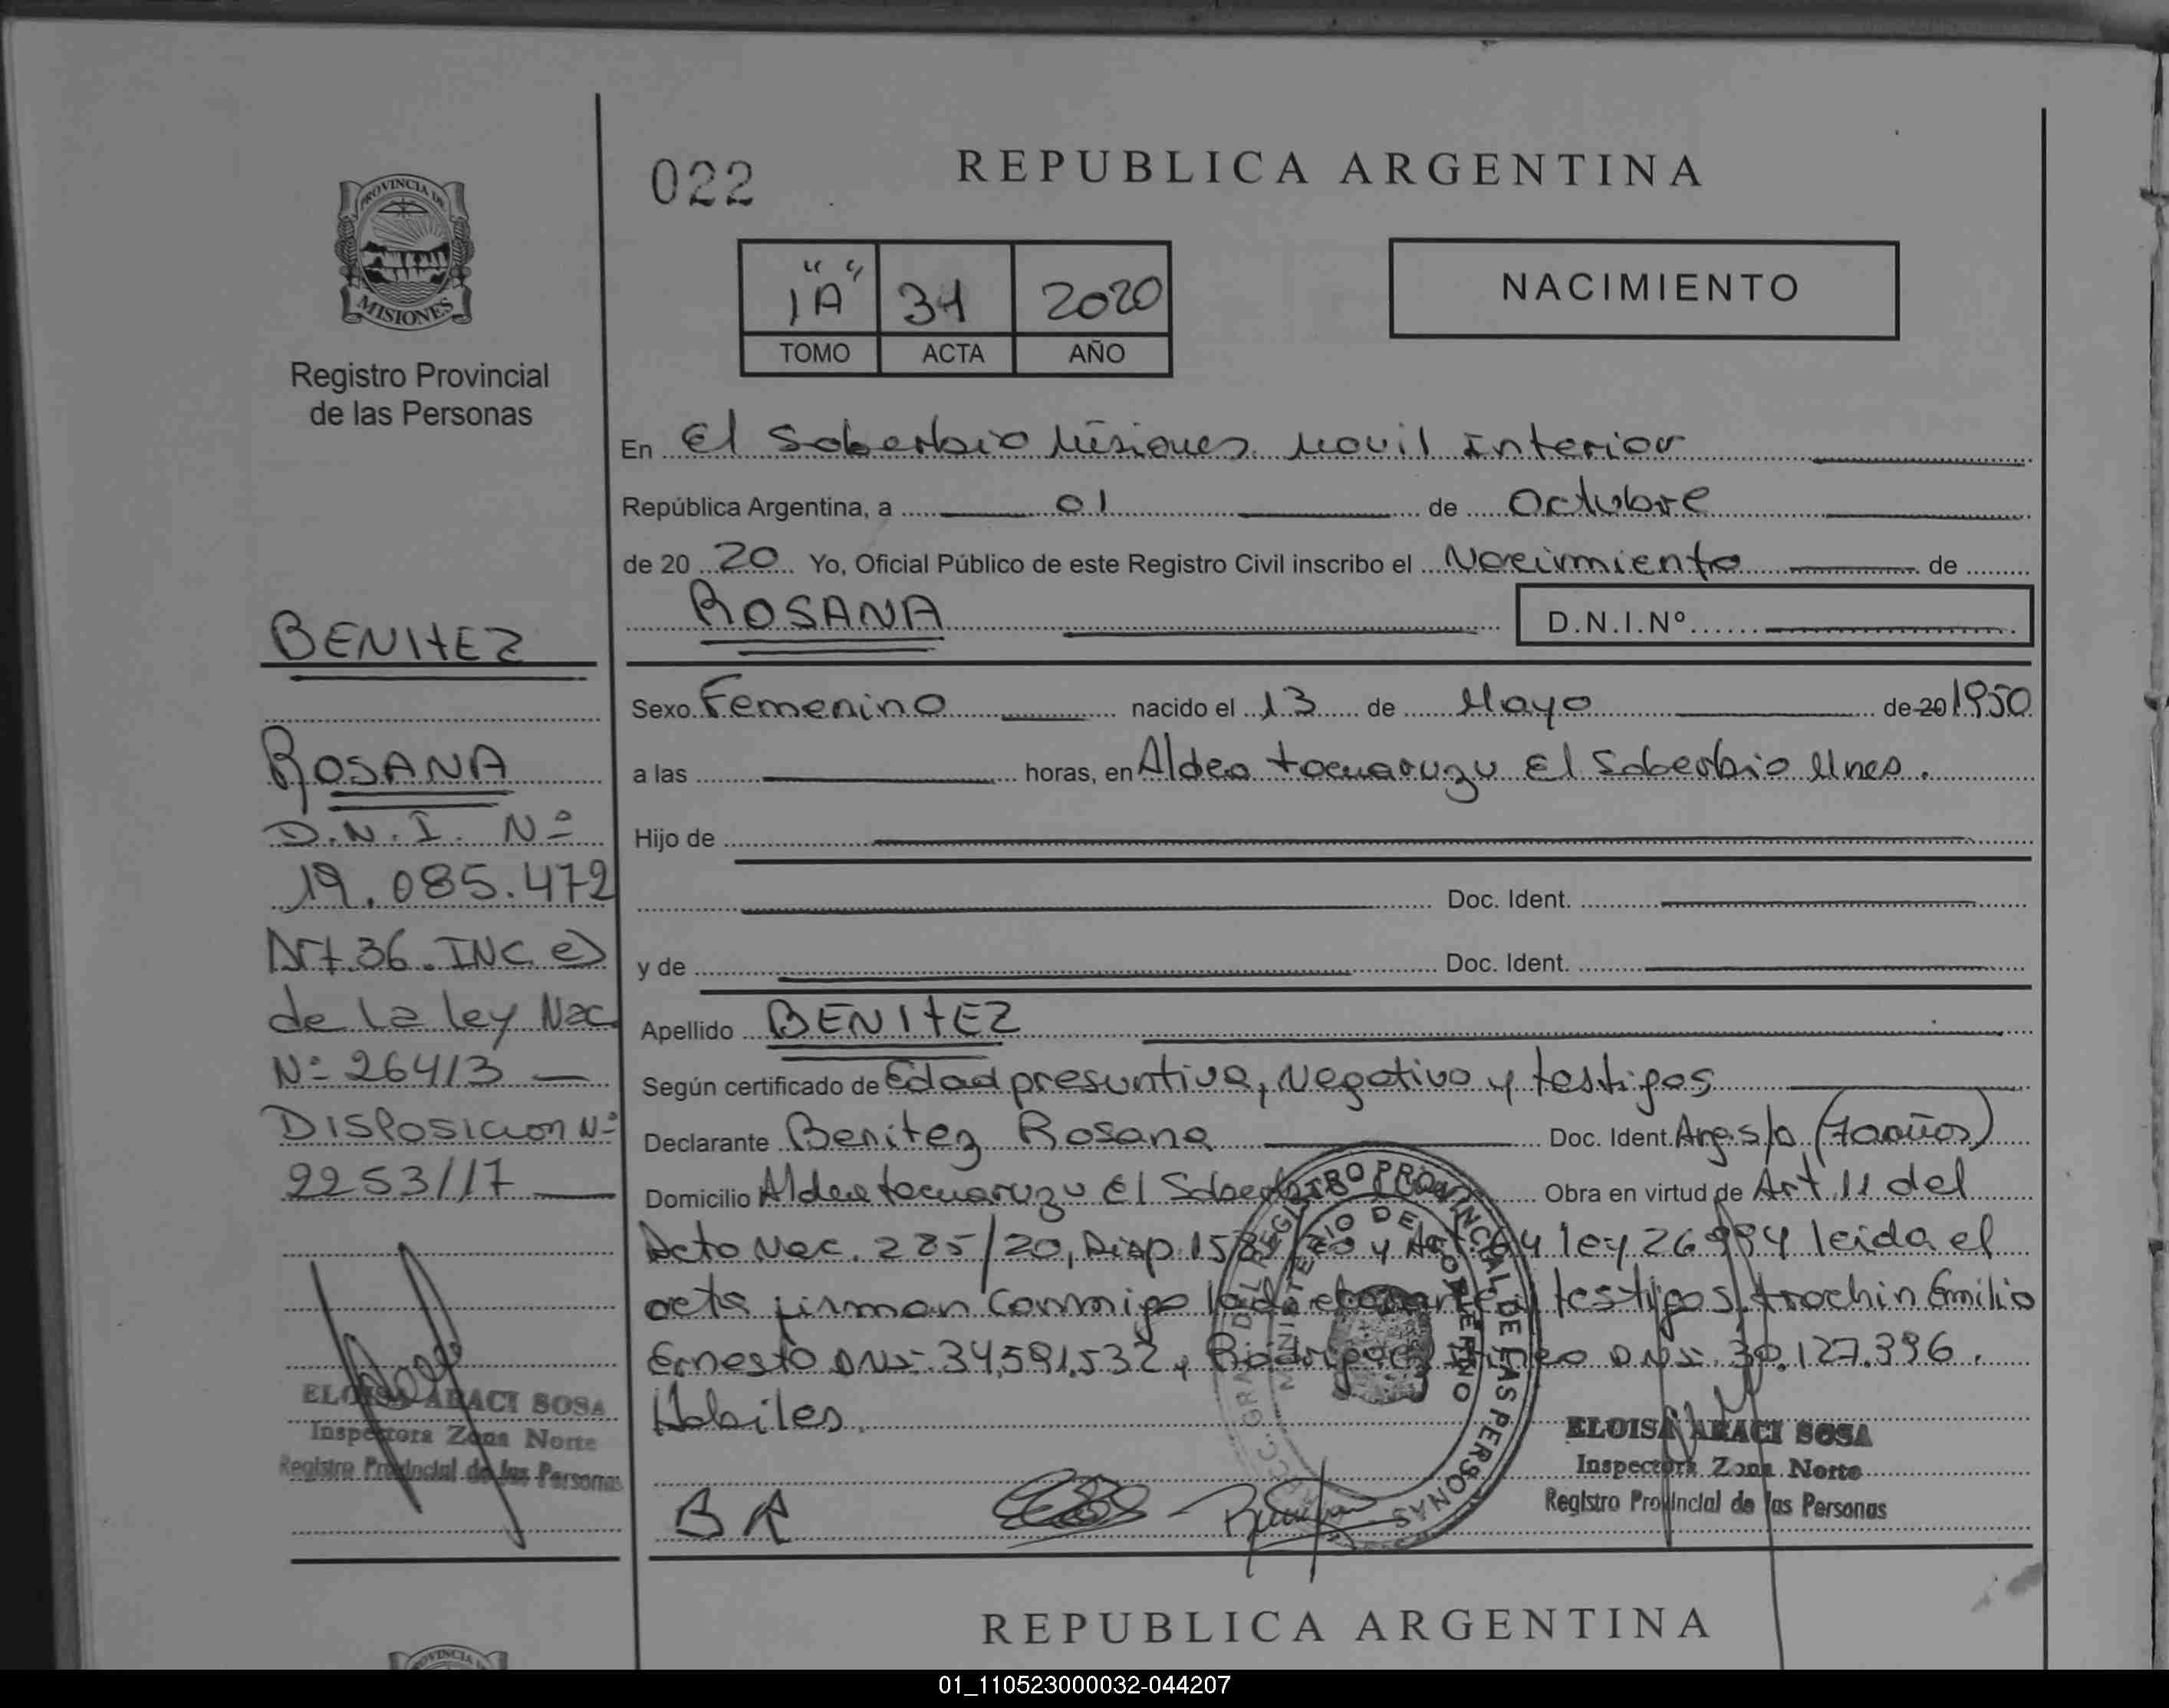 022
REPUBLICA ARGENTINA
PROVINCIA DE
MISIONES
Registro Provincial
de las Personas
1 "A" 31 2020
TOMO ACTA AÑO
NACIMIENTO
En El Soberbio Misiones Movil Interior
República Argentina, a 01 de Octubre
de 20 20 Yo, Oficial Público de este Registro Civil inscribo el Nacimiento de
ROSANA D.N.I.Nº
Sexo Femenino nacido el 13 de Mayo de 20 1950
a las horas, en Aldea tacuaruzu El Soberbio Mnes.
Hijo de
Doc. Ident.
y de Doc. Ident.
Apellido BENITEZ
Según certificado de Edad presuntiva, Negativo y testigos
Declarante Benitez Rosana Doc. Ident. Arg. s/d (70años)
Domicilio Aldea tacuaruzu El Obra en virtud de Art. 11 del
Dcto Nac. 285/20, Disp. y ley 26994 leida el
acta firman Conmigo testigos, trochin Emilio
Ernesto DNI: 34,591,532, DNI: 30.127.396.
Habiles.
BR
BENITEZ
ROSANA
D.N.I. Nº
19.085.472
Art. 36. INC. e)
de la ley Nac.
Nº 26413
DISPOSICION Nº
2253/17
ELOISA ARACI SOSA
Inspectora Zona Norte
Registro Provincial de las Personas
ELOISA ARACI SOSA
Inspectora Zona Norte
Registro Provincial de las Personas
REPUBLICA ARGENTINA
01_110523000032-044207